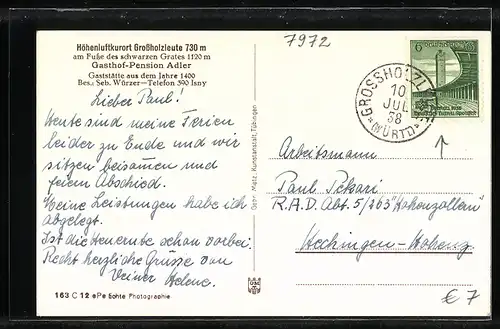 Höhenluftkurort Großholzleute 730 m
am Fuße des schwarzen Grates 1120 m
Gasthof-Pension Adler
Gaststätte aus dem Jahre 1400
Bes.: Seb. Würzer—Telefon 390 Isny
Lieber Paul!
Heute sind meine Ferien
leider zu Ende und wir
sitzen beisammen und
feiern Abschied.
Meine Leistungen habe ich
abgelegt.
Ist die Heuernte schon vorbei.
Recht herzliche Grüsse von
Deiner Helene.
163 C 12 ePe Echte Photographie
Gebr. Metz, Kunstanstalt, Tübingen
7972
6
GROSSHOLZL
10
JUL
38
(WÜRTT)
Arbeitsmann
Paul
R.A.D. Abt. 5/263 "Hohenzollern"
Hechingen-Hohenz.
€ 7